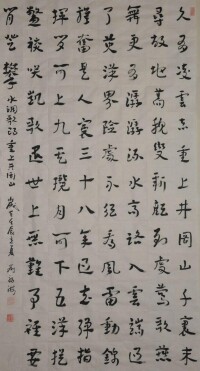 久有凌雲志重上井岡山千里来
尋故地舊貌變新颜到處鶯歌燕
舞更有潺潺流水高路入雲端過
了黄洋界險處不須看風雷動旌
旗奮是人寰三十八年過去弹指一
揮間可上九天攬月可下五洋捉
鱉談笑凱歌還世上無難事祇要
肯登攀 水调歌头 重上井岡山